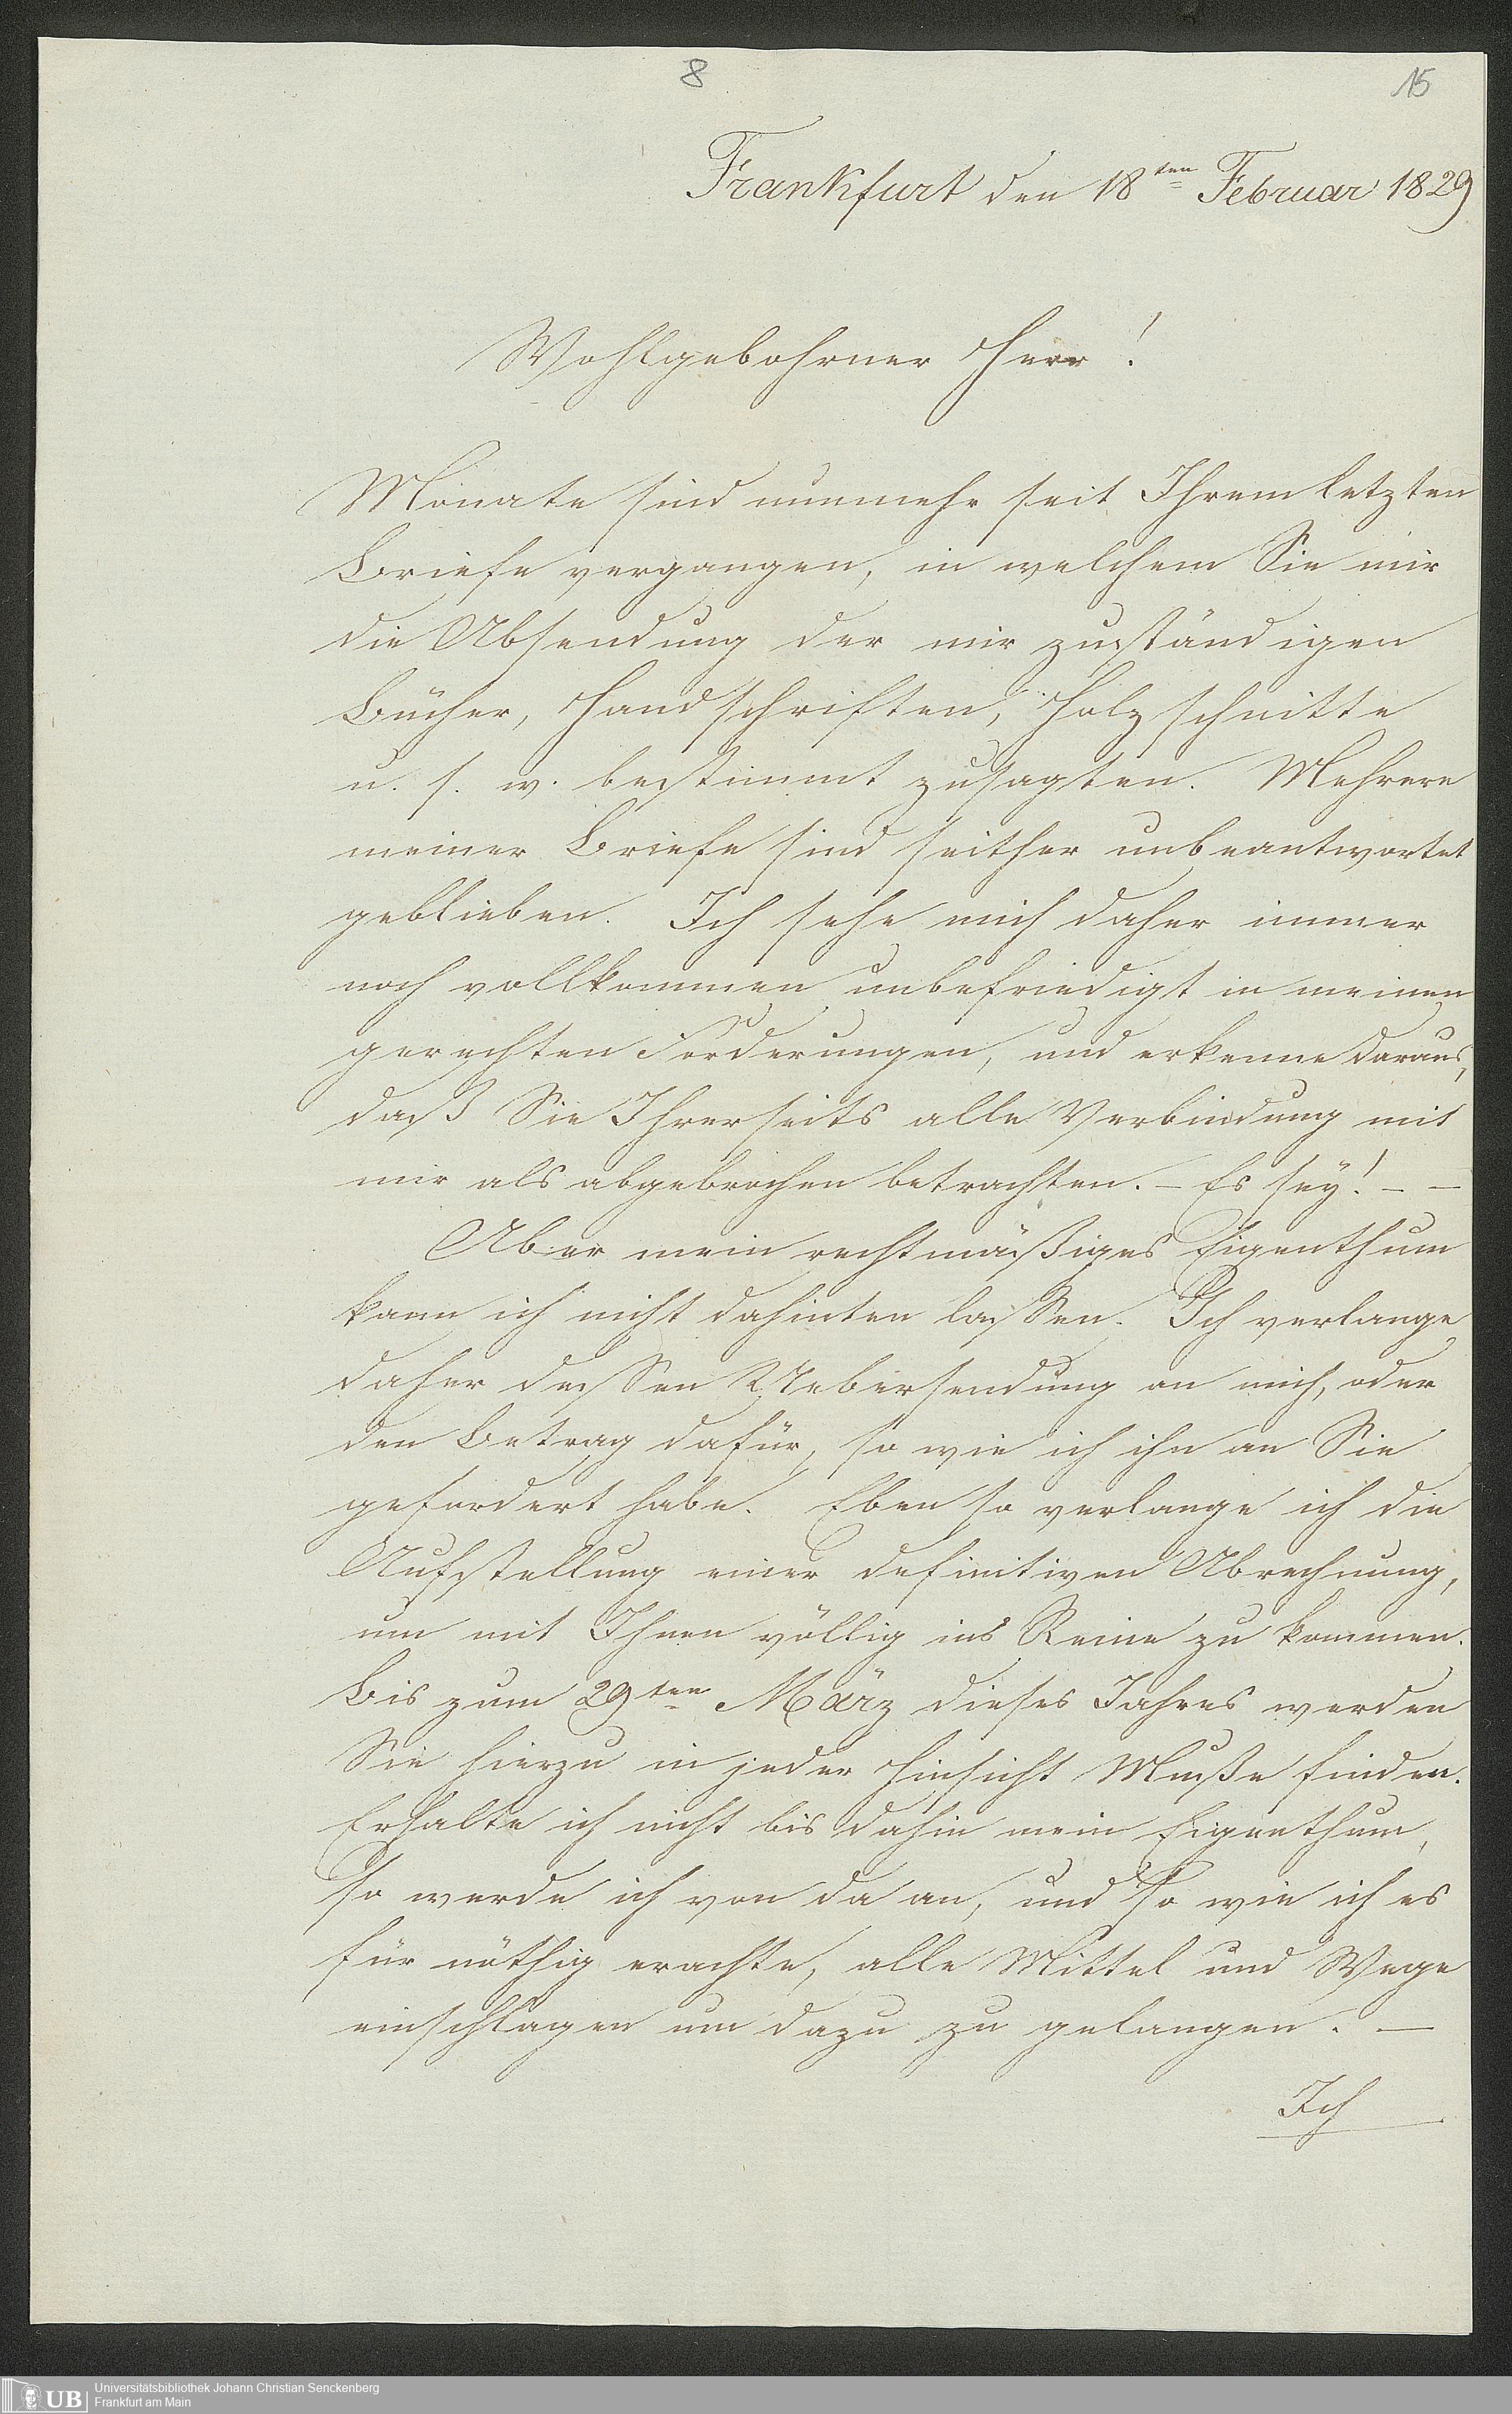 8
15
Frankfurt den 18ten Februar 1829
Wohlgebohrner Herr!
Monate sind nunmehr seit Ihrem letzten
Briefe vergangen, in welchem Sie mir
die Absendung der mir zuständigen
Bücher, Handschriften, Holzschnitte
u. s. w. bestimmt zusagten. Mehrere
meiner Briefe sind seither unbeantwortet
geblieben. Ich sehe mich daher immer
noch vollkommen unbefriedigt in meinen
gerechten Forderungen, und erkenne daraus,
daß Sie Ihrerseits alle Verbindung mit
mir als abgebrochen betrachten. – Es sey! – –
Aber mein rechtmäßiges Eigenthum
kann ich nicht dahinten lassen. Ich verlange
daher dessen Uebersendung an mich, oder
den Betrag dafür, so wie ich ihn an Sie
gefordert habe. Eben so verlange ich die
Aufstellung einer definitiven Abrechnung,
um mit Ihnen völlig ins Reine zu kommen.
Bis zum 29ten März dieses Jahres werden
Sie hierzu in jeder Hinsicht Muße finden.
Erhalte ich nicht bis dahin mein Eigenthum,
so werde ich von da an, und so wie ich es
für nöthig erachte, alle Mittel und Wege
einschlagen um dazu zu gelangen. –
Ich
UB
Universitätsbibliothek Johann Christian Senckenberg
Frankfurt am Main